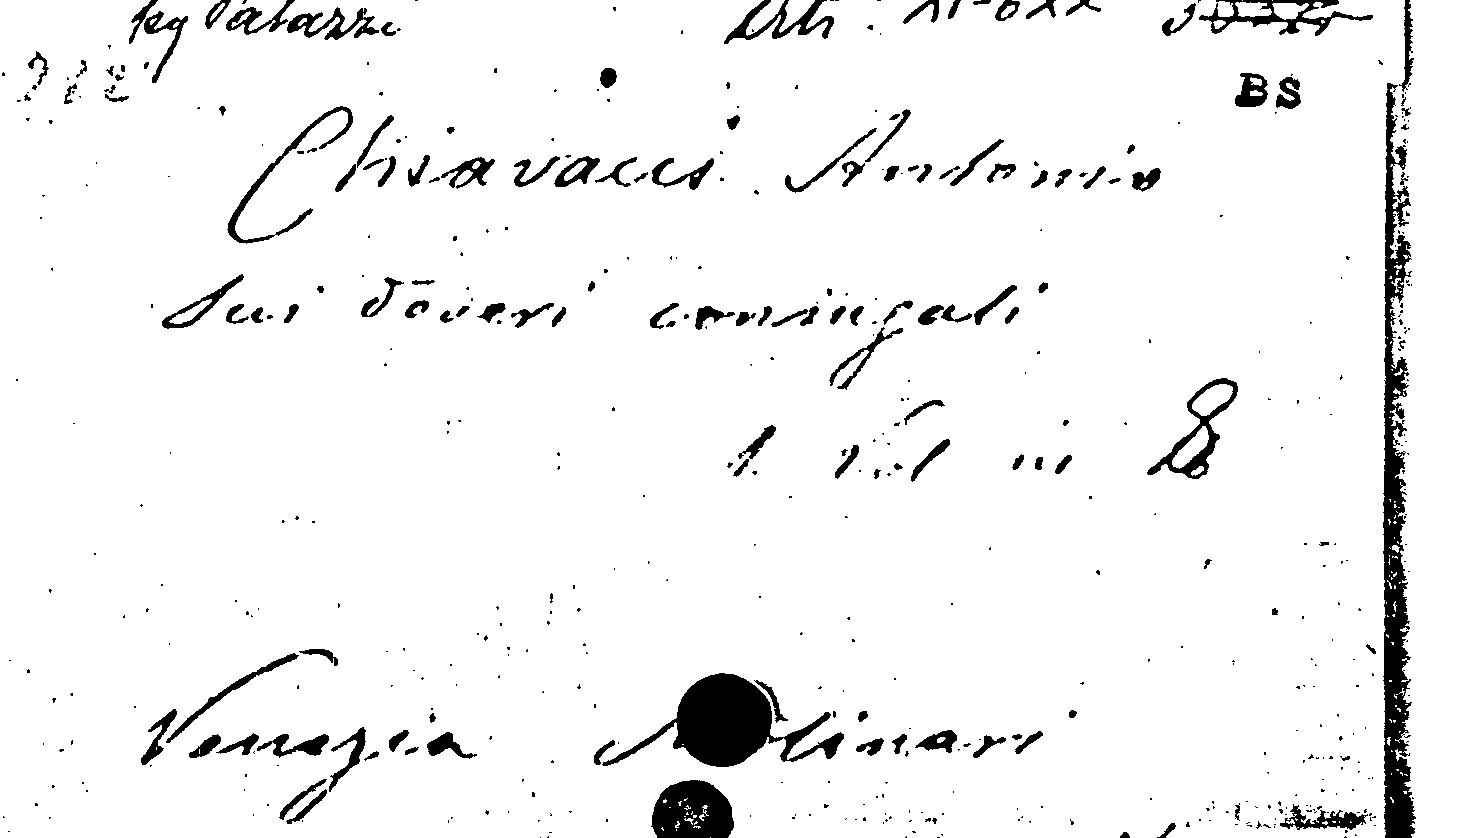 leg Palazzi
BS
Chiavacci Antonio
Sui doveri coniugali
1 Vol in 8
Venezia Molinari